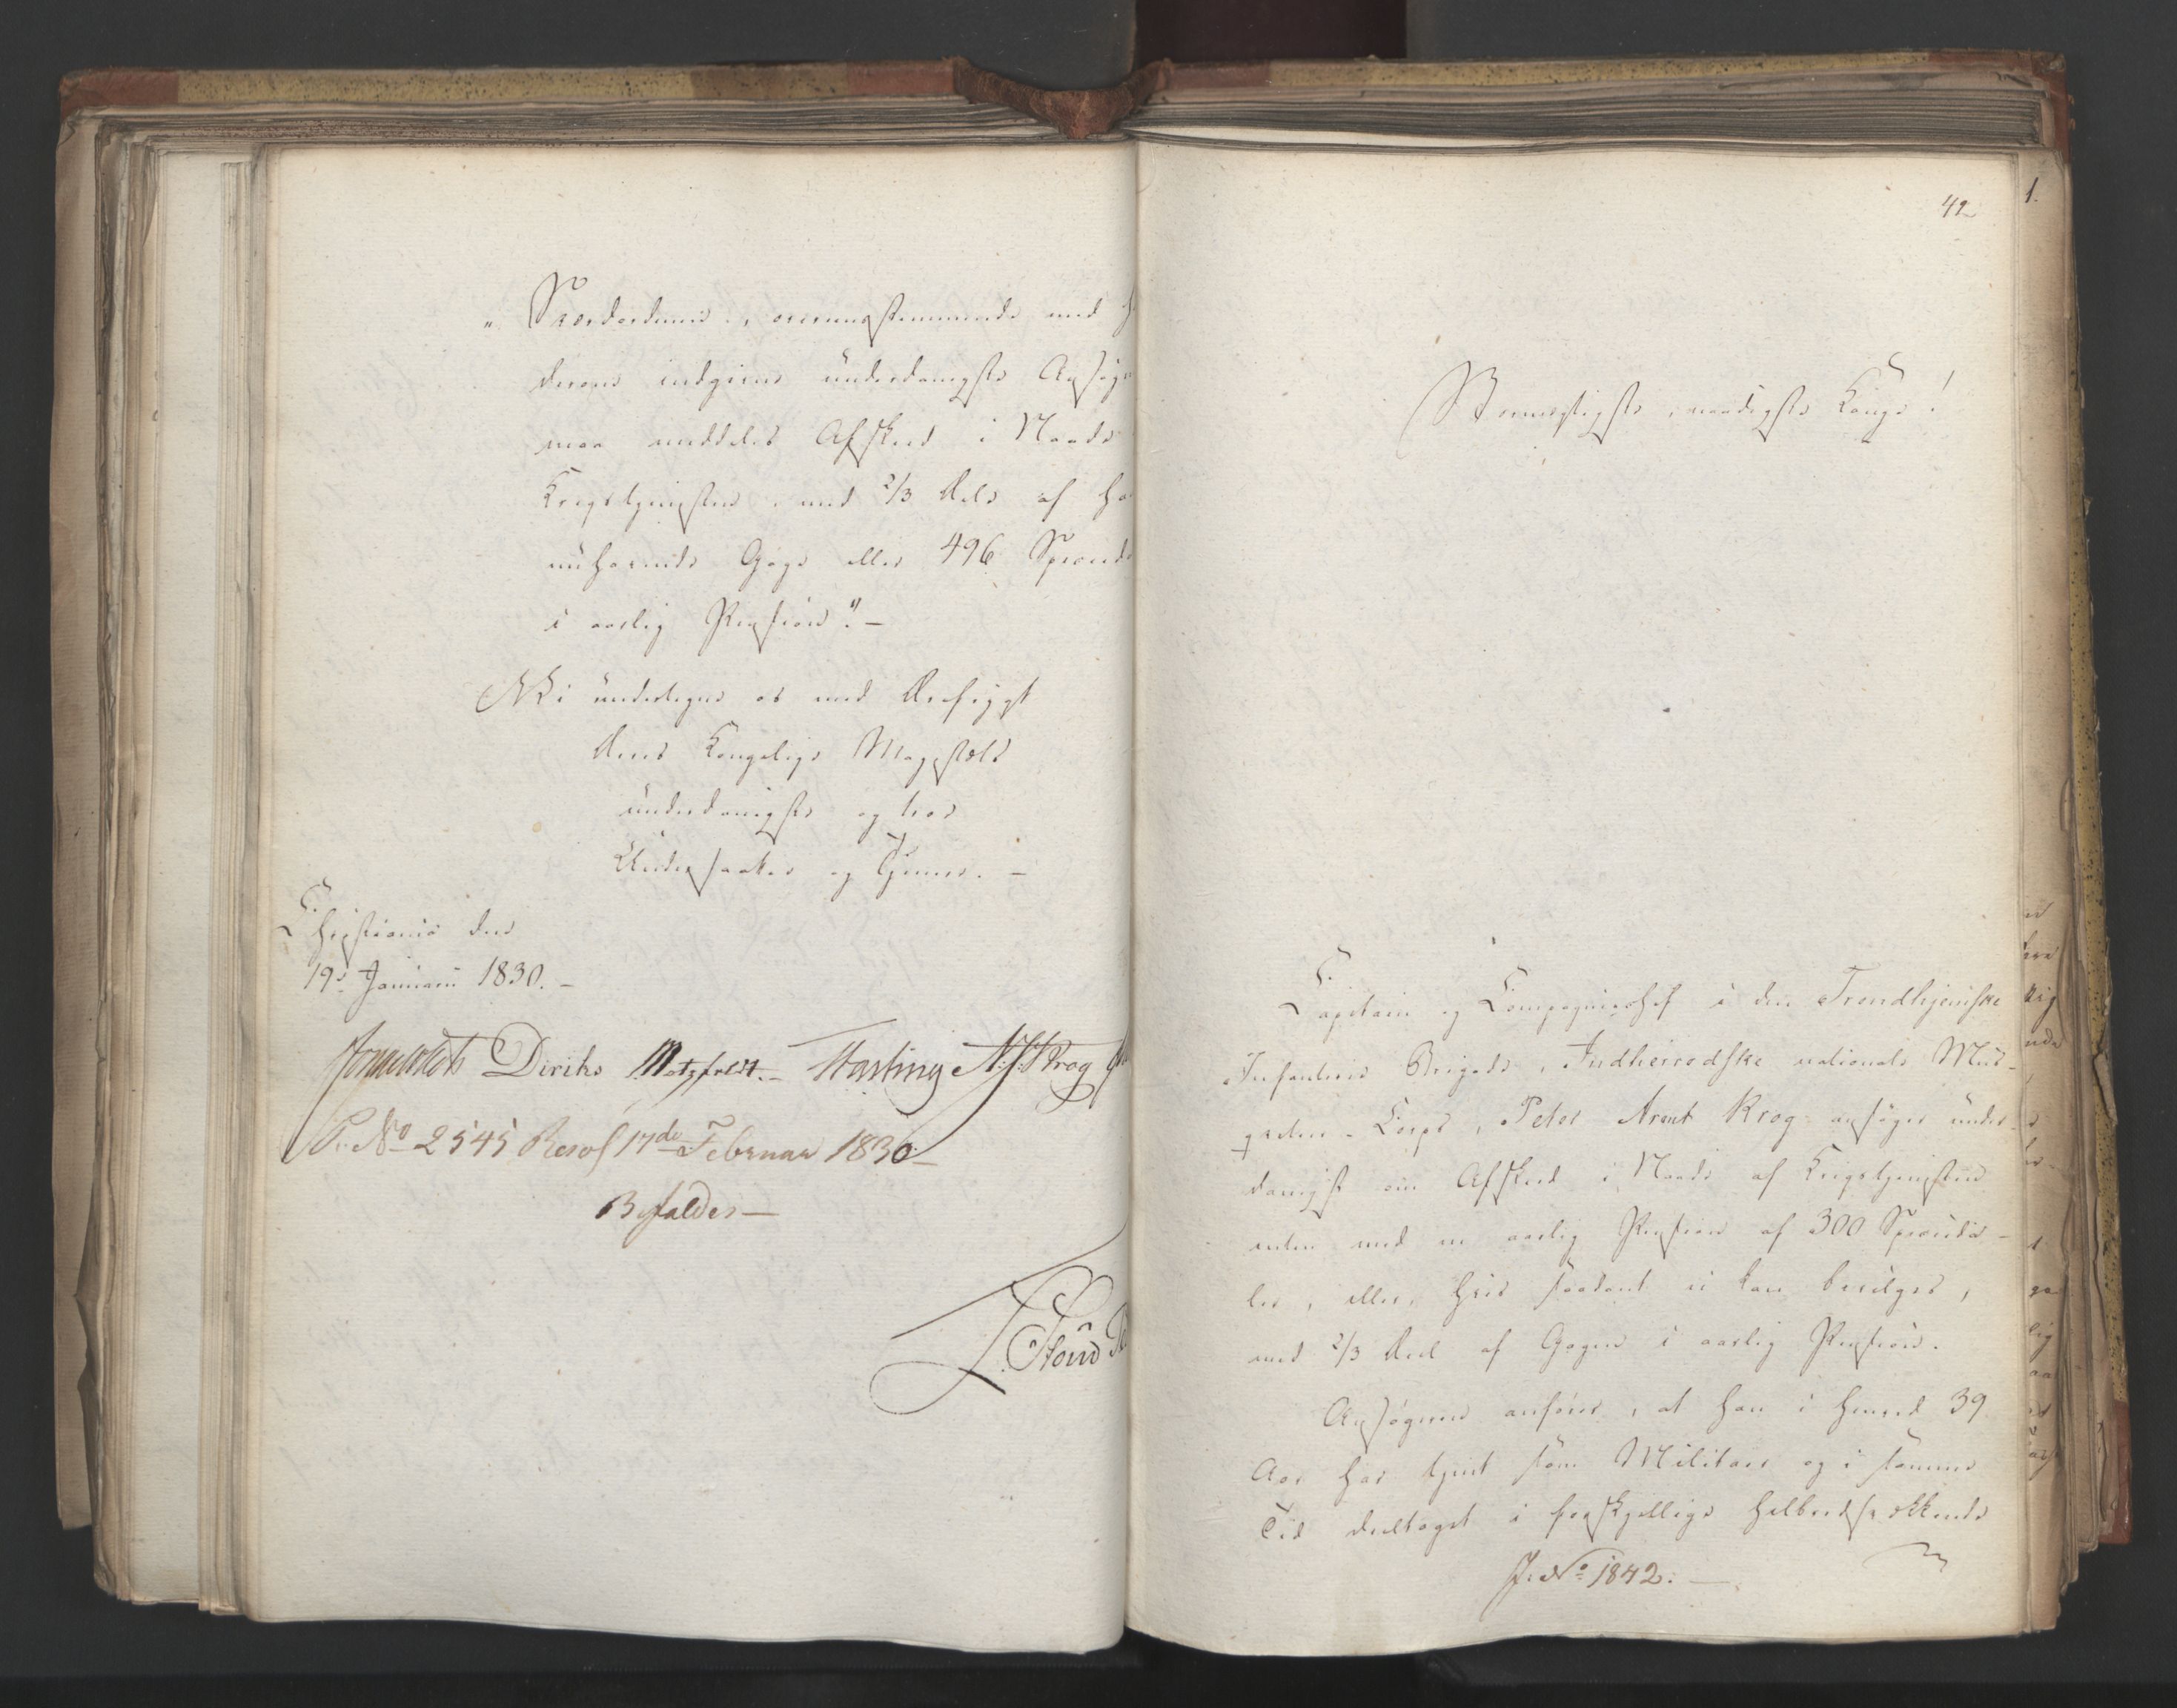 „ Sværdordenen, overeensstemmende med
derom indgivne underdanigste Ansøgn
maa meddeles Afskeed i Naade
Krigstjenesten, med 2/3 Dele af ha
nuhavende Gage eller 496 Speciedl
i aarlig Pension".-
Vi undertegne os med Ærefrygt
Deres Kongelige Majestæts
underdanigste og troe
Undersaatter og Tjenere. -
Christiania den
19de Januarii 1830. -
Diriks Motzfeldt. - Fasting N. J. Krog
Pr. No 2545 Resol 17de Februar 1830 -
Bifaldes -
42
1.
Stormægtigste, naadigste Konge!
Capitain og Compagniechef i den Trondhjemske
Infanterie Brigade, Indherredske nationale Mus-
queteer-Corps, Peter Arent Krog ansøger under-
danigst om Afskeed i Naade af Krigstjenesten
enten med en aarlig Pension af 300 Speciesda-
ler, eller, hvis saadant ei kan bevilges,
med 2/3 Deel af Gagen i aarlig Pension.
Ansøgeren anfører, at han i henved 39
Aar har tjent som Militair og i samme
Tid deeltaget i forskjellige helbredsvækkende
J. No 1842. -